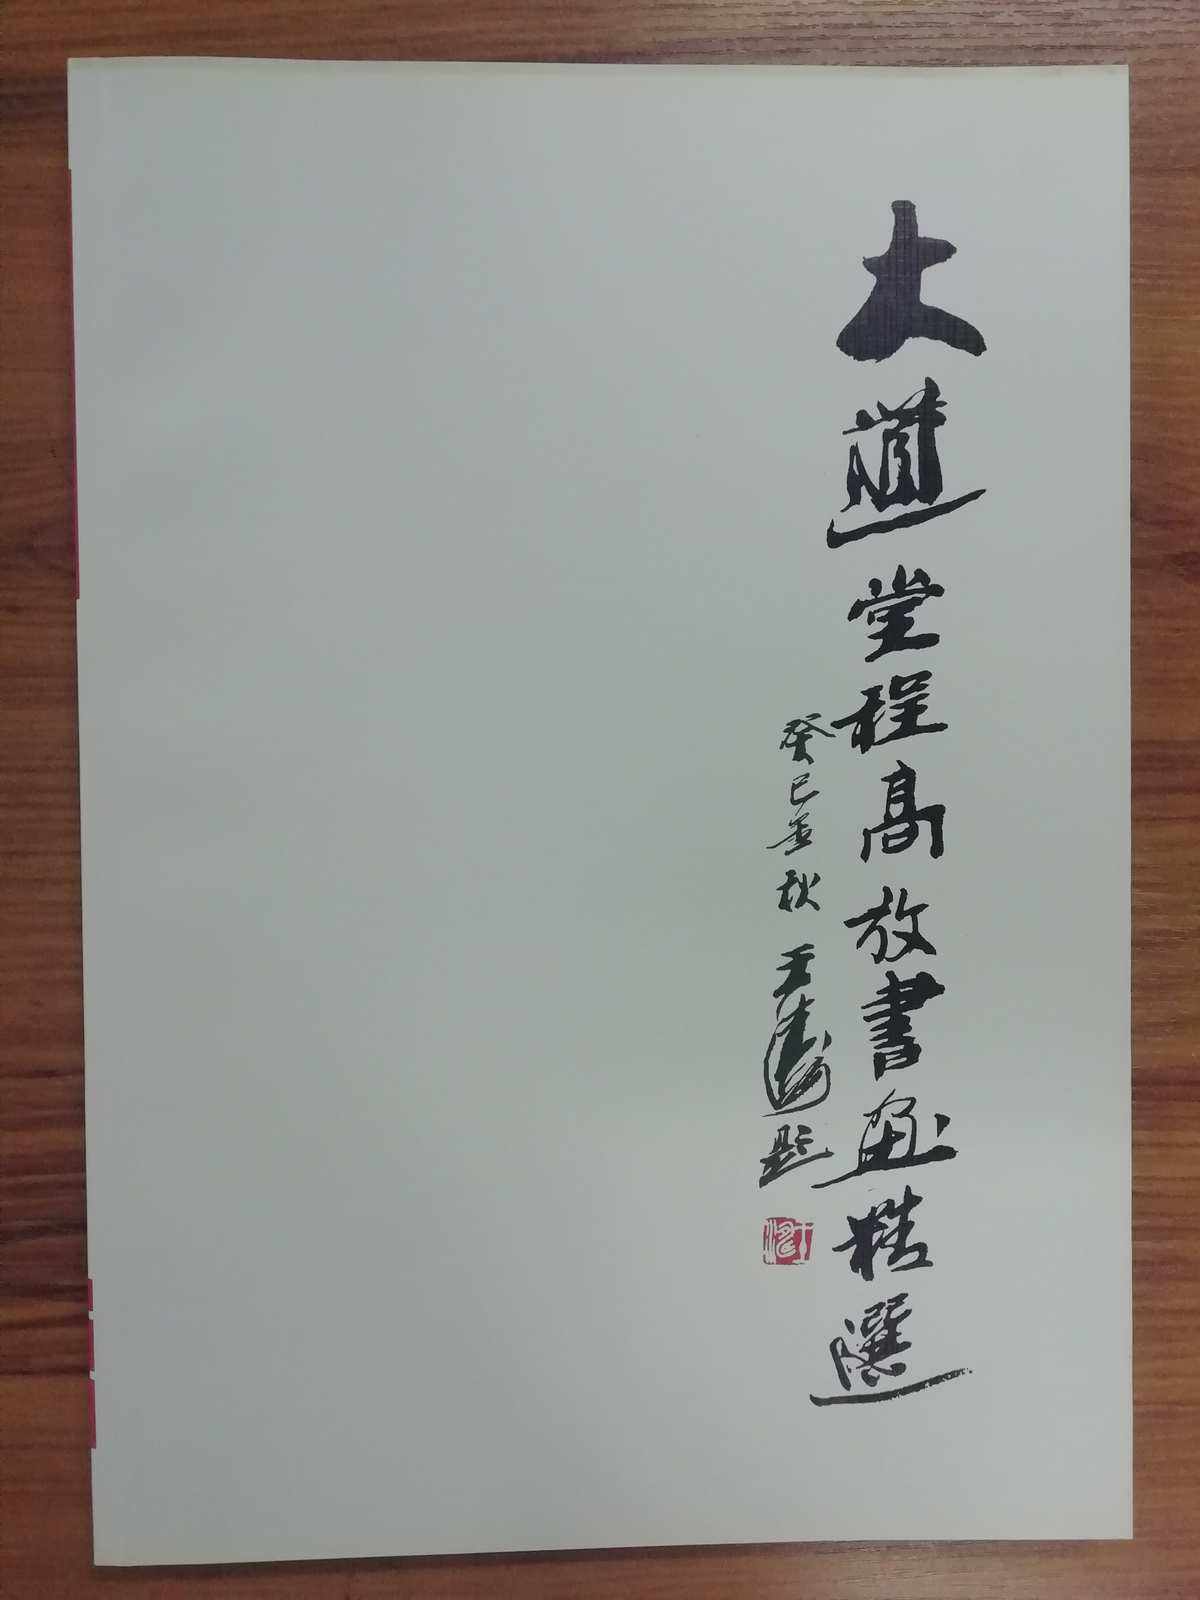 大道堂程高放書画精選
癸巳金秋 王濤題